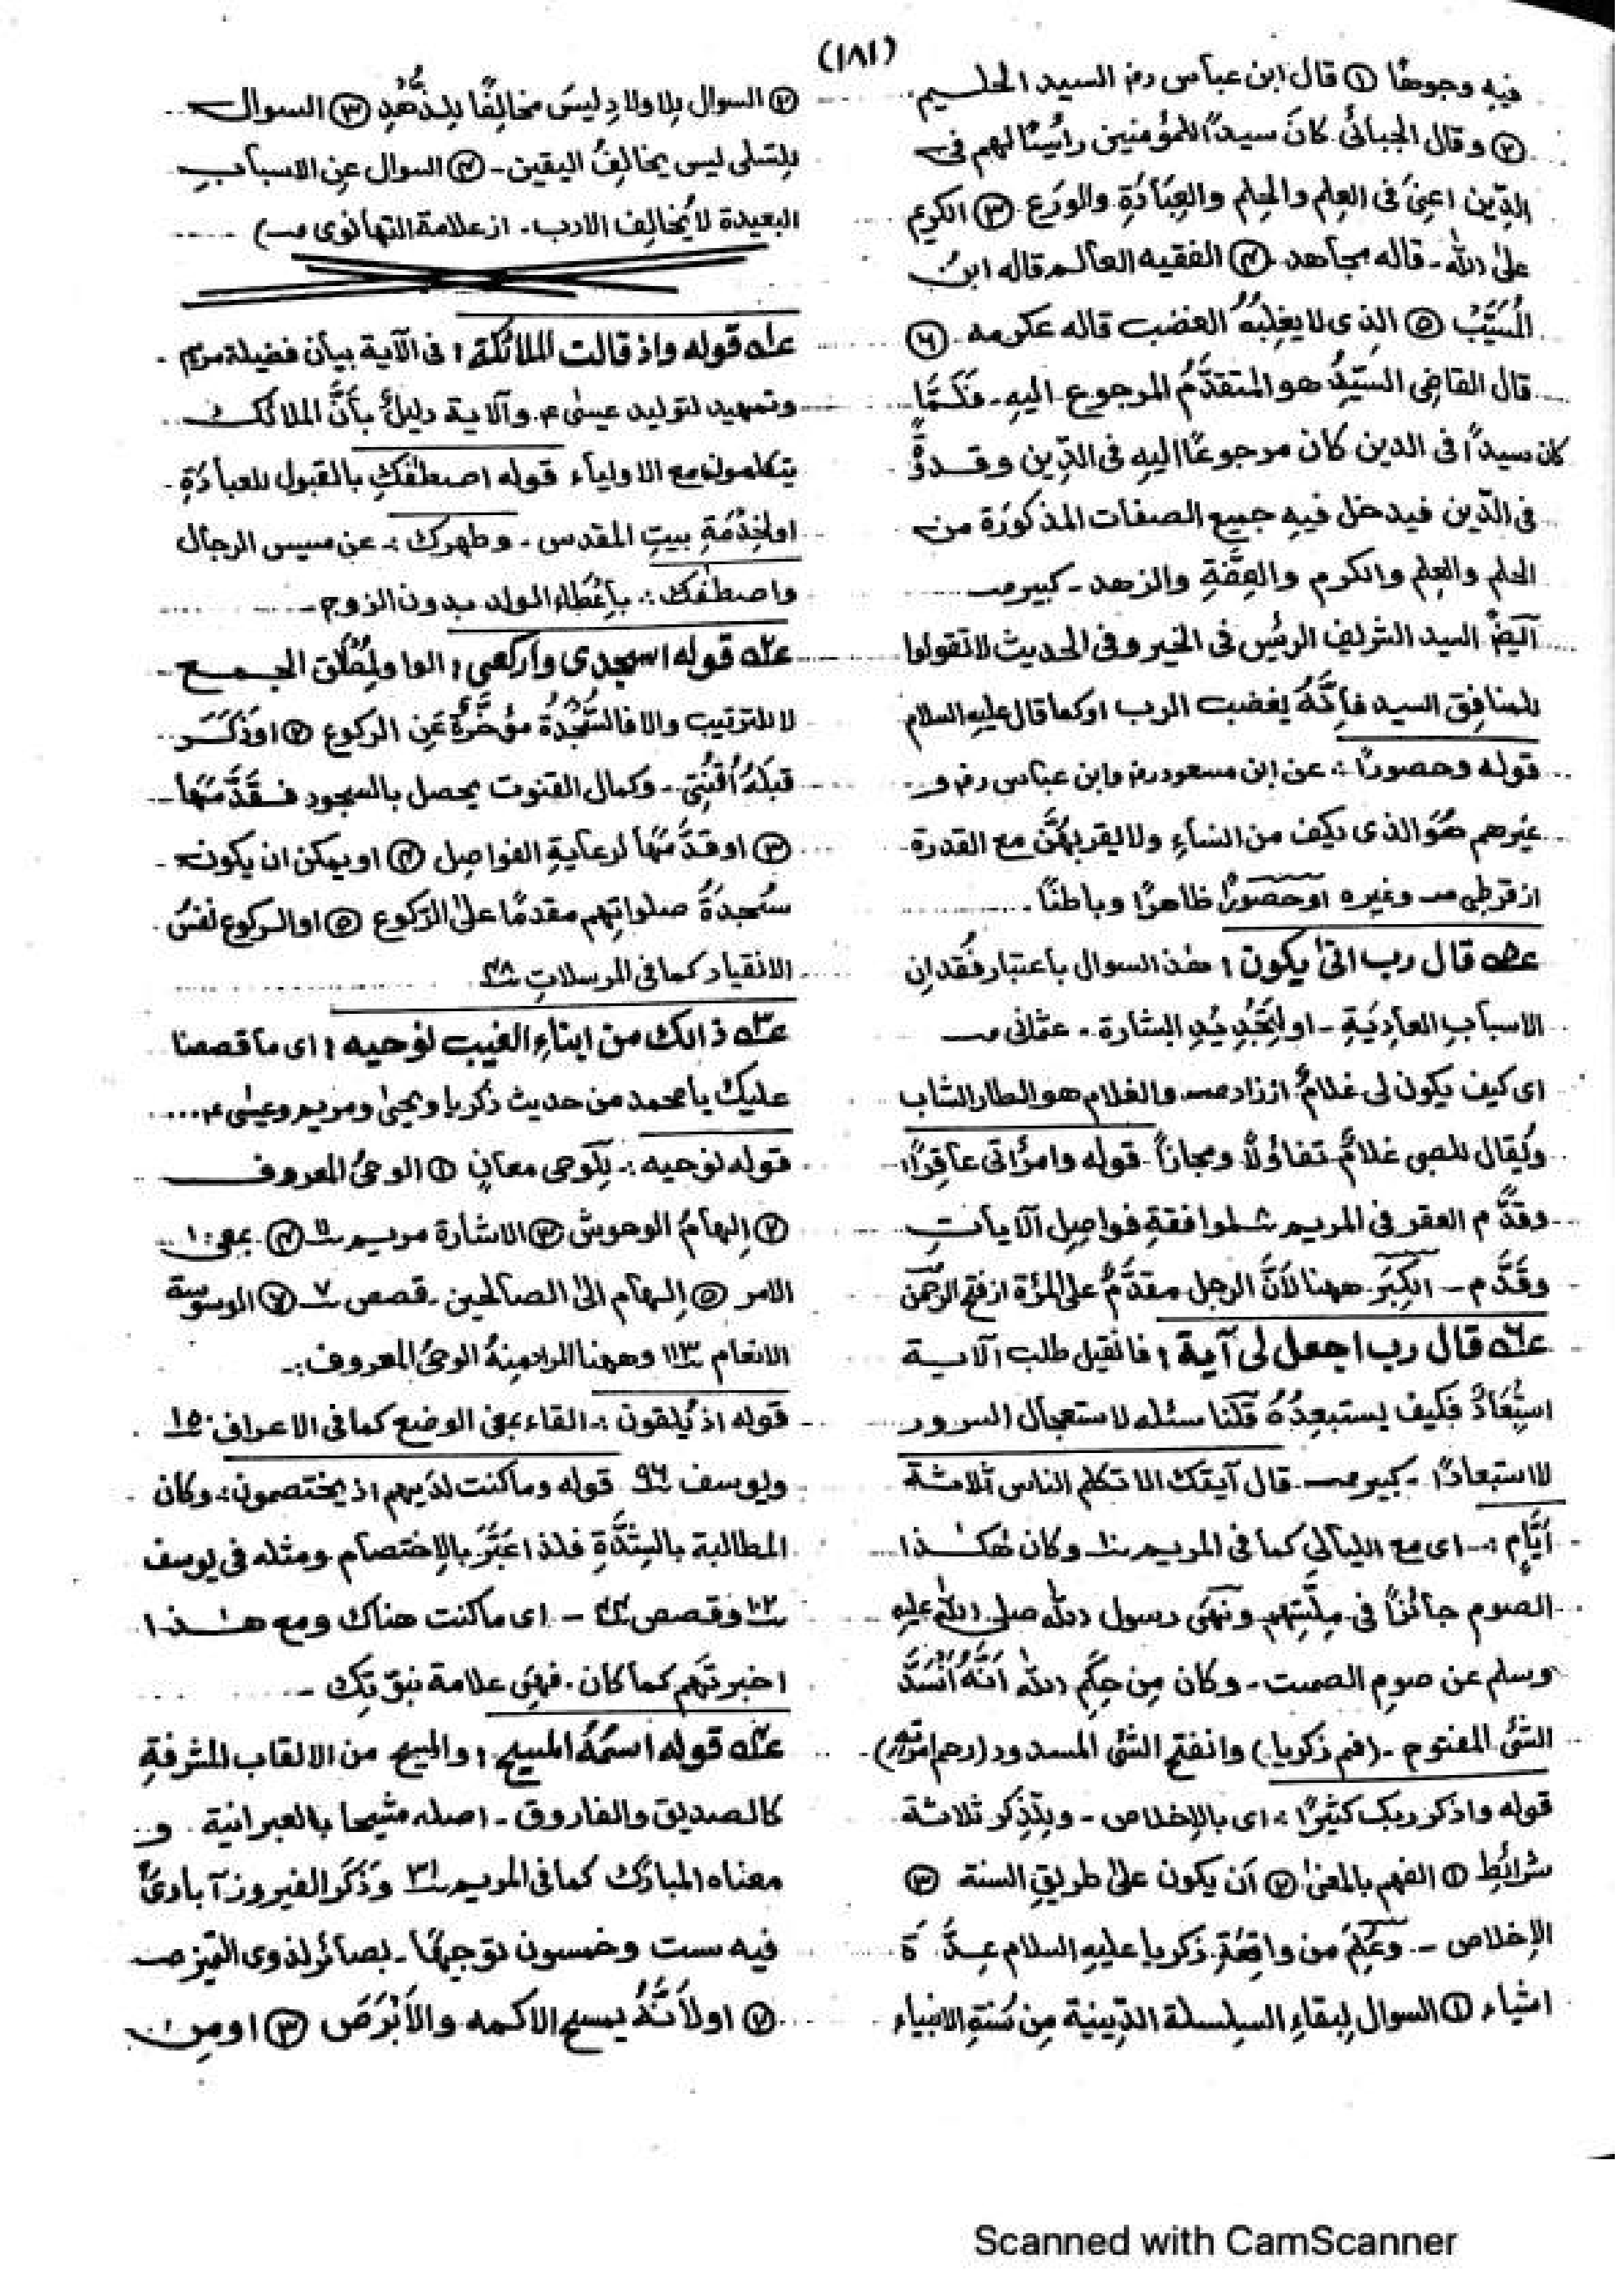 (١٨١)
فيه وجوهًا ① قال ابن عباس رض السيد الحليم
② وقال الجبائى كانَ سيدًا للمؤمنين رأيسًا لهم فى
الدّين اعنِىَ فى العِلم والحِلم والعِبَادَةِ والوَرَع ③ الكريم
علىٰ الله ـ قاله مجاهد ④ الفقيه العالم قاله ابنُ
المُسَيَّبْ ⑤ الذى لا يغلِبُهُ الغضب قاله عكرمه ـ ⑥
قال القاضى السَّيِّدُ هو المتقدَّمُ المرجوع اليهِ ـ فَلَمَّا
كان سيدًا فى الدين كان مرجوعًا اليهِ فى الدِّين وقدوةً
فى الدّين فيدخل فيهِ جميع الصفات المذكورَة من
الحلم والعِلم والكرم والعِفَّةِ والزهد ـ كبير
آيضٌ السيد الشريف الرئيس فى الخير وفى الحديث لا تقولوا
للمنافِق السيد فاِنَّهُ يغضب الرب اوكما قال عليهِ السلام
قوله وحصورًا :ـ عن ابن مسعود رض وابن عباس رض و
غيرهم هُوَ الذى يكف من النساءِ ولا يقربهُنَّ مع القدرة
از قرطبى وغيره اوحصورًا ظاهرًا وباطنًا ـ
ع٥ قال رب انىٰ يكون ؛ هٰذ السوال باعتبار فُقدانِ
الاسبابِ العاديَةِ ـ او لِتَجْدِيدِ البشارة ـ عثمانى
اى كيف يكون لى غلامٌ از زاد والغلام هو الطار الشاب
ويُقال للصبى غلامٌ تفاؤلًا ومجازًا قوله وامرٔاتى عاقِرًا؛
وقدَّم العقر فى المريم لموافقةِ فواصِلِ آلايأتِ
وقَدَّم ـ الكِبَرَ ههنا لأنَّ الرجل مقدَّمٌ على المرٔة از فتح الرحمٰن
ع٦ قال رب اجعل لى آية ؛ فانْ قيل طلب آلاية
استِبْعَادٌ فكيف يستبعِدُهُ قُلنا سئله لاستعجال السرور
لا استبعادًا ـ كبير قال آيتك الا تكلم الناس ثلاثة
اَيَّامٍ :ـ اى مع الليالى كما فى المريم ١٠ وكان هٰكذا
الصوم جائزًا فى مِلَّتِهم ونَهَى رسول الله صلى الله عليه
وسلم عن صومِ الصمت ـ وكان مِن حِكَمِ الله اَنَّهُ اِنْسَدَّ
الشئى المفتوم ـ (فم زكريا) وانفتح الشئى المسدود (رحم امرٔته) ـ
قوله واذكر ربك كثيرًا :ـ اى بالاِخلاص ـ ولِلذِكر ثلاثة
شرائط ① الفهم بالمعنىٰ ② اَن يكون علىٰ طريقِ السنة ③
الاِخلاص ـ وعُلِمَ من واقِعَةِ زكريا عليهِ السلام عِدَّة
اشياء ① السوال لِبقاءِ السِلسلة الدّينية مِن سُنةِ الانبياء
② السوال بِلا ولادٍ ليسَ مخالِفًا بِلزُّهْدِ ③ السوال
بِلتسلى ليس يخالِفُ اليقين ـ ④ السوال عنِ الاسبابِ
البعيدة لا يُخالِف الادب ـ از علامة التهانوى
ع١ قوله واذ قالت الملائكة ؛ فى الآية بيأن فضيلة مريم ـ
وتمهيد لتوليد عيسىٰ ع. وآلاية دليلٌ بأَنَّ الملائك
يتكلمون مع الاولياء قوله اصطفٰكِ بالقبول للعبأدَةِ ـ
اولخِذمَةِ بيتِ المقدس ـ وطهرك :ـ عن مسيس الرجال
واصطفٰك :ـ بِأِعْطَاء الولد بدون الزوج ـ
ع٢ قوله اسجدى واركعى ؛ الواو لِمُطْلَق الجمع
لا للترتيب والا فالسَّجْدَةُ مؤخَّرَةٌ عَنِ الركوع ② اوذكَرَ
قبلَهُ اُقْنُتِى ـ وكمال القنوت يحصل بالسجود فقَدَّمَهَا ـ
③ اوقدَّمَهَا لرعايةِ الفواصِل ④ اويمكن ان يكون
سُجدةُ صلواتِهم مقدمًا علىٰ الرّكوع ⑤ اوالركوع نفسُ
الانقياد كما فى المرسلاتِ ٤٨
ع٣ ذالك من ابناءِ الغيب نوحيه ؛ اى ما قصصنا
عليك يا محمد من حديث زكريا ويحيىٰ ومريم وعيسىٰ ع
قوله نوحيه :ـ لِلوحى معانٍ ① الوحىُ المعروف
② اِلهامُ الوحوش ③ الاشارة مريم ١١ ④ بمعنى
الامر ⑤ اِلهام الىٰ الصالحين ـ قصص ٧ ⑥ الوسوسة
الانعام ١١٣ وههنا المراد مِنهُ الوحىُ المعروف :ـ
قوله اذ يُلقون :ـ القاء بمعنى الوضع كما فى الاعراف ١٥٠
ويوسف ٩٦ قوله وما كنت لدَيهم اذ يختصمون :ـ وكان
المطالبة بالشِدَّةِ فلذا عَبَّرَ بالاِختصام ومثله فى يوسف
١٠٢ وقصص ٤٤ ـ اى ما كنت هناك ومع هٰذا
اخبرتَهم كما كان ـ فهٰىِ علامة نبوّتِك ـ
ع٤ قوله اسمُهُ المسيح ؛ والمسيح من الالقاب المشرفةِ
كالصديق والفاروق ـ اصله مشيحا بالعبرانية و
معناه المبارَك كما فى المريم ٣١ وذَكَر الفيروز آبادىُ
فيه ست وخمسون توجيهًا ـ بصائر لذوى التميز
② اولأنَّهُ يمسح الاكمه والاَبْرَصَ ③ اومِن
Scanned with CamScanner